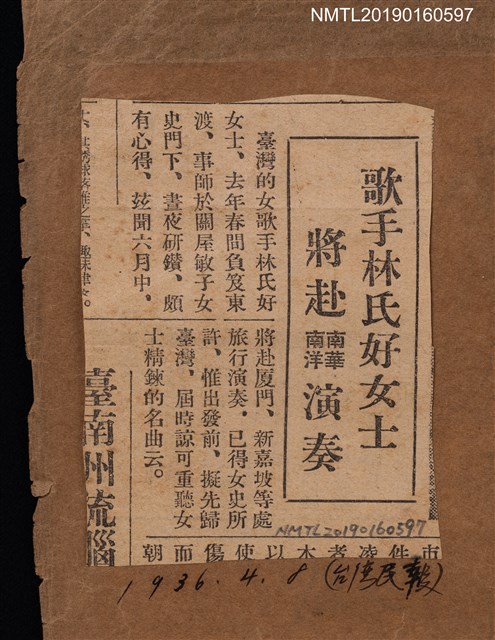 NMTL20190160597
歌手林氏好女士
將赴南華南洋演奏
臺灣的女歌手林氏好
女士、去年春間負笈東
渡、事師於關屋敏子女
史門下、晝夜研鑚、頗
有心得、玆聞六月中、
將赴厦門、新嘉坡等處
旅行演奏、已得女史所
許、惟出發前、擬先歸
臺灣、屆時諒可重聽女
士精鍊的名曲云。
臺南州
NMTL20190160597
1936.4.8(台湾民報)